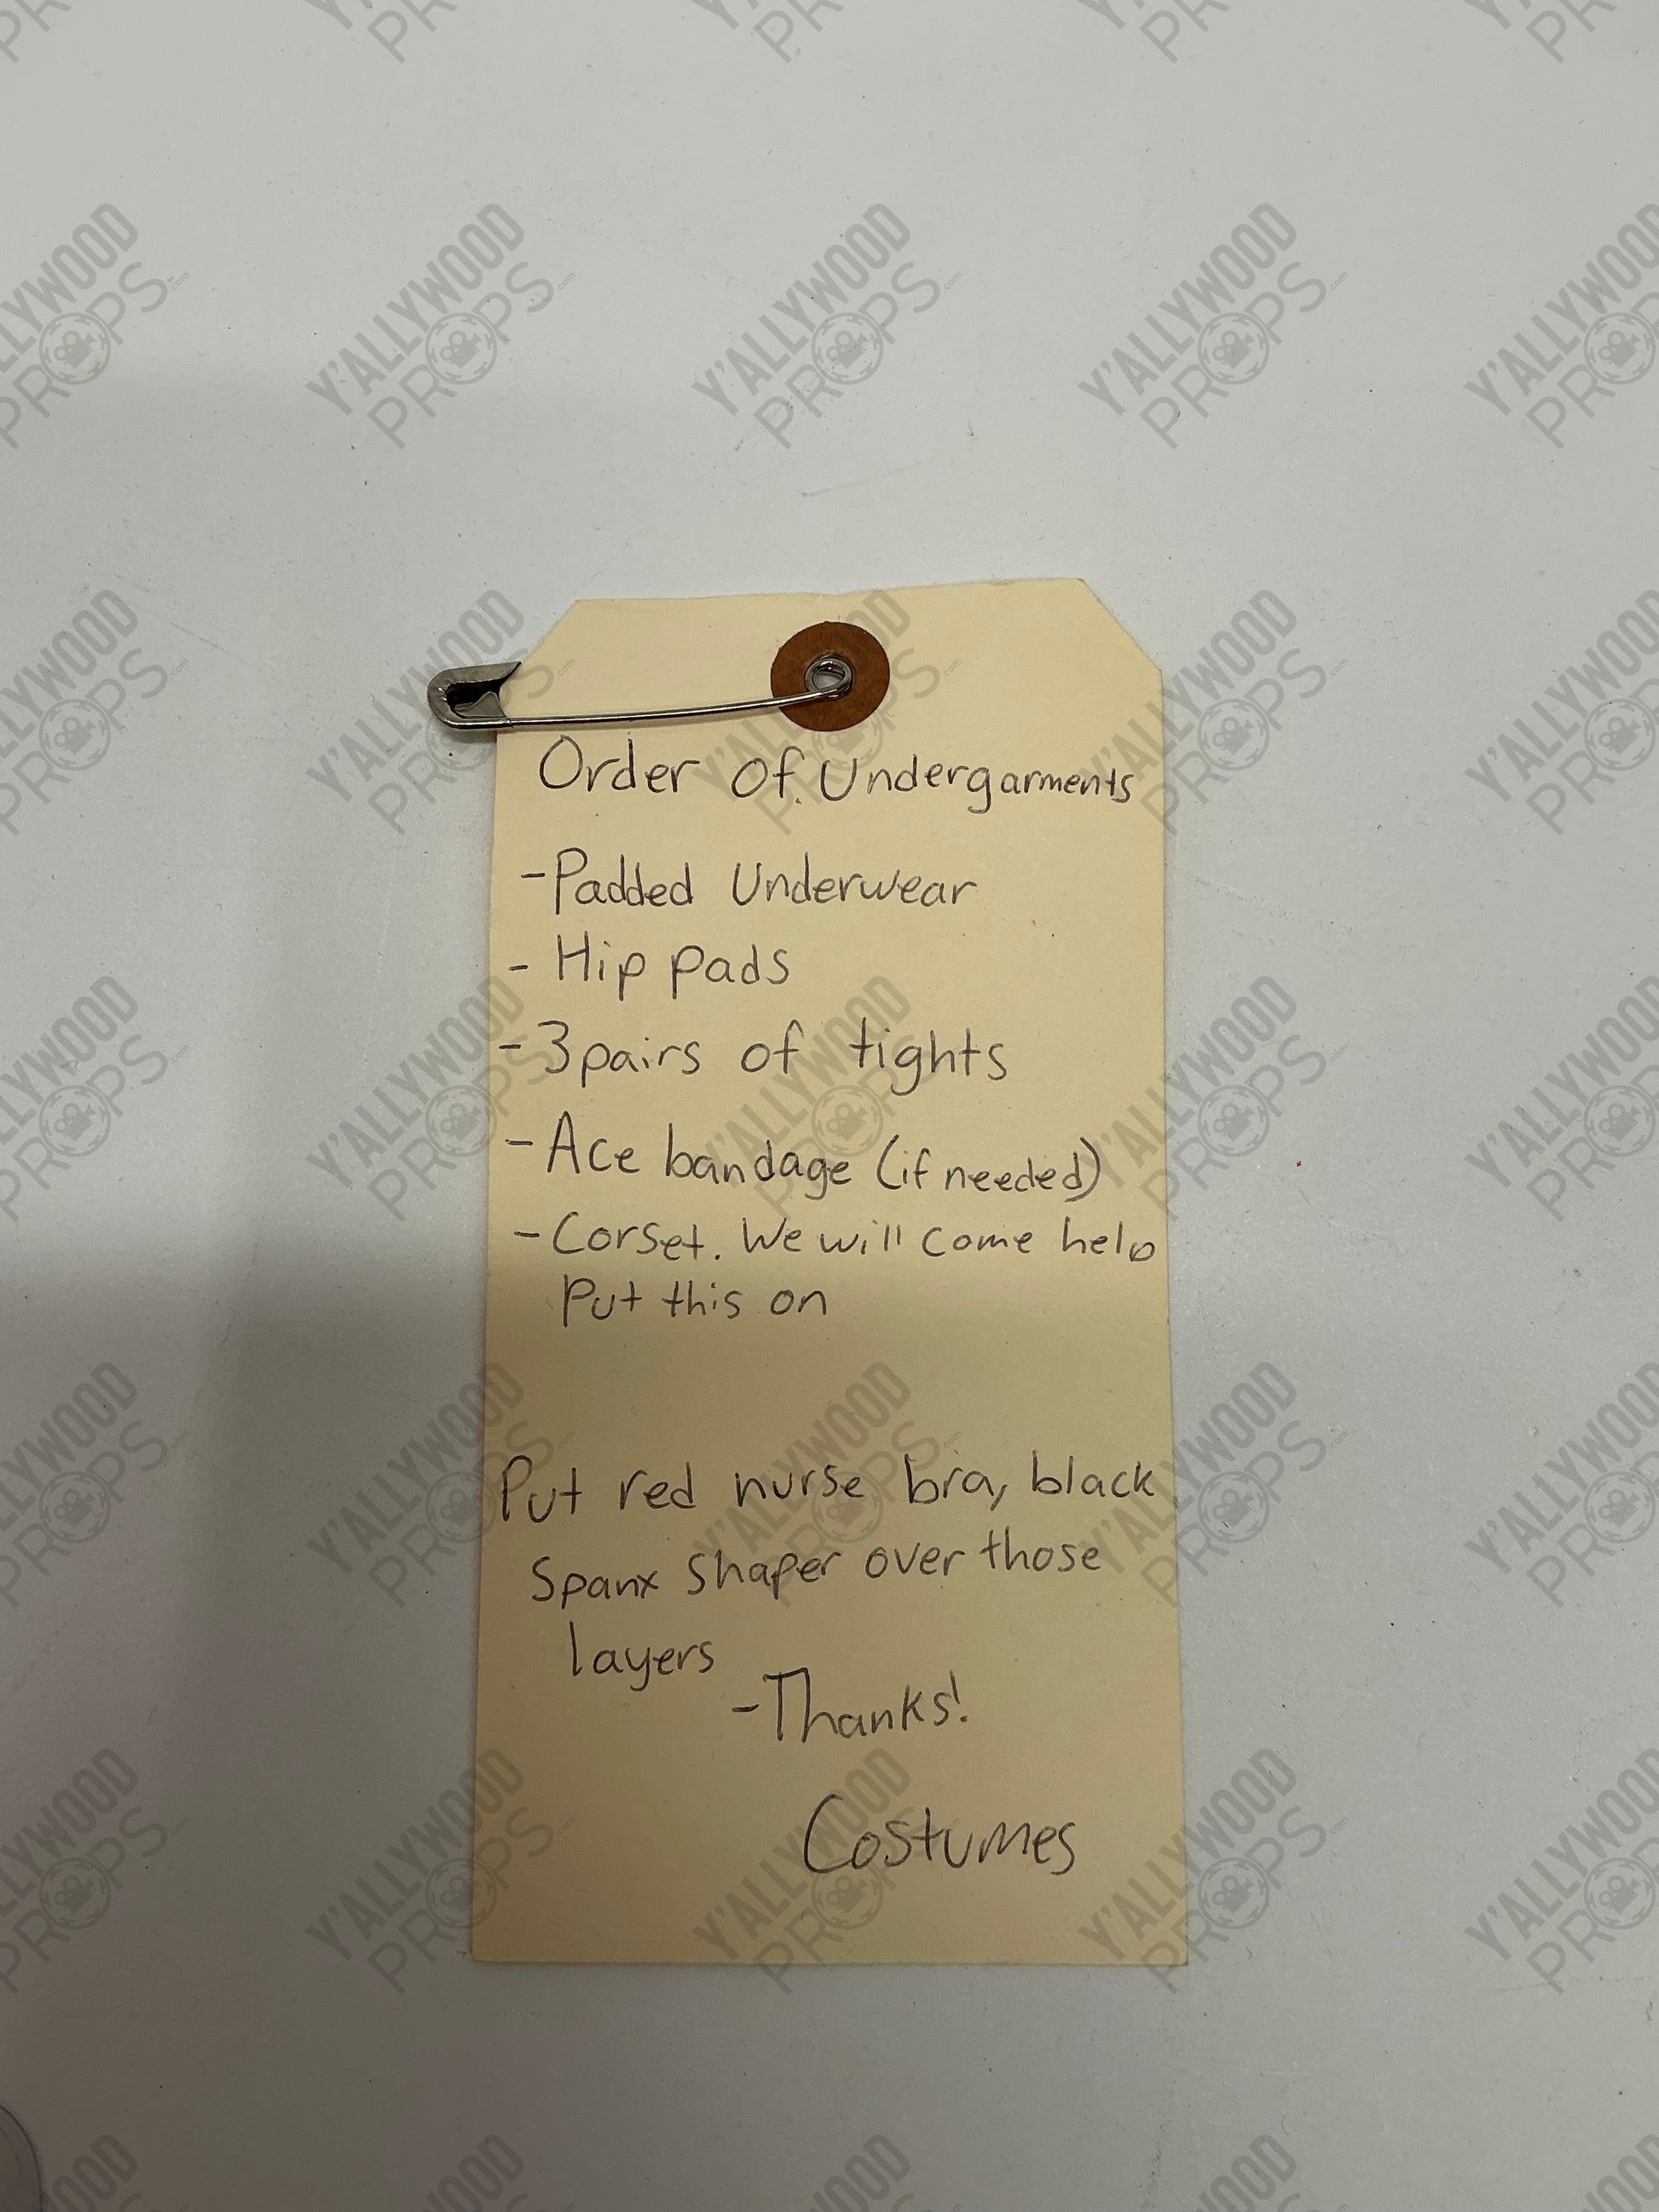 Order of Undergarments
- Padded Underwear
- Hip Pads
- 3 pairs of tights
- Ace bandage (if needed)
- Corset. We will come help
Put this on
Put red nurse bra, black
Spanx Shaper over those
layers
- Thanks!
Costumes
Y'ALLYWOOD
PROPS.com